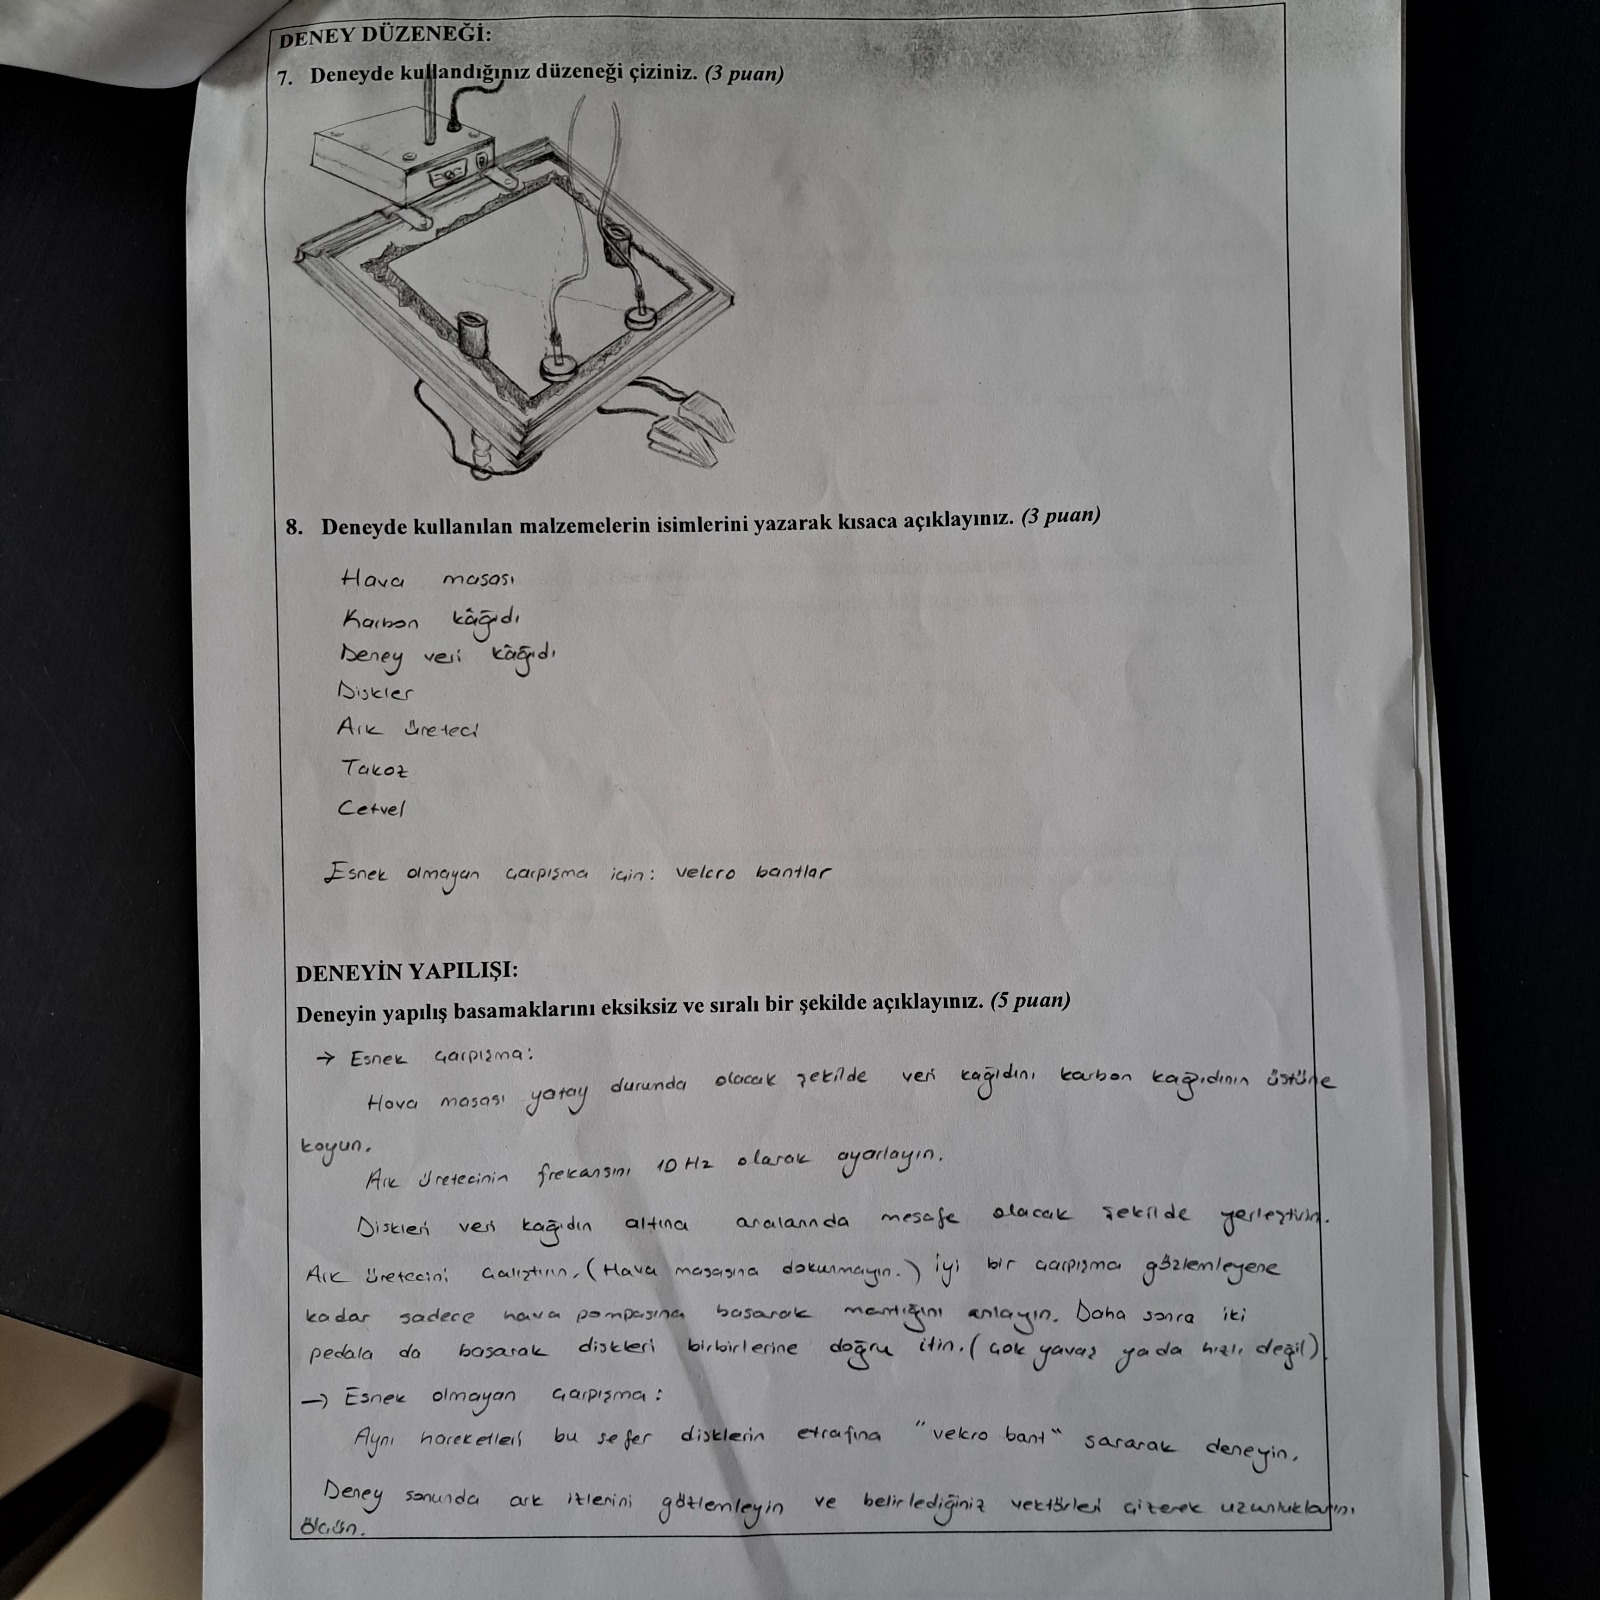 DENEY DÜZENEĞİ:
7. Deneyde kullandığınız düzeneği çiziniz. (3 puan)
8. Deneyde kullanılan malzemelerin isimlerini yazarak kısaca açıklayınız. (3 puan)
Hava masası
Karbon kâğıdı
Deney veri kâğıdı
Diskler
Ark üreteci
Takoz
Cetvel
Esnek olmayan çarpışma için: velcro bantlar
DENEYİN YAPILIŞI:
Deneyin yapılış basamaklarını eksiksiz ve sıralı bir şekilde açıklayınız. (5 puan)
→ Esnek çarpışma:
Hava masası yatay durunda olacak şekilde veri kağıdını karbon kağıdının üstüne
koyun.
Ark üretecinin frekansını 10 Hz olarak ayarlayın.
Diskleri veri kağıdın altına aralarında mesafe olacak şekilde yerleştirin.
Ark üretecini çalıştırın. (Hava masasına dokunmayın.) iyi bir çarpışma gözlemleyene
kadar sadece hava pompasına basarak mantığını anlayın. Daha sonra iki
pedala da basarak diskleri birbirlerine doğru itin. (çok yavaş yada hızlı değil)
→ Esnek olmayan çarpışma:
Aynı hareketleri bu sefer disklerin etrafına "velcro bant" sararak deneyin.
Deney sonunda ark izlenini gözlemleyin ve belirlediğiniz vektörleri çizerek uzunluklarını
ölçün.